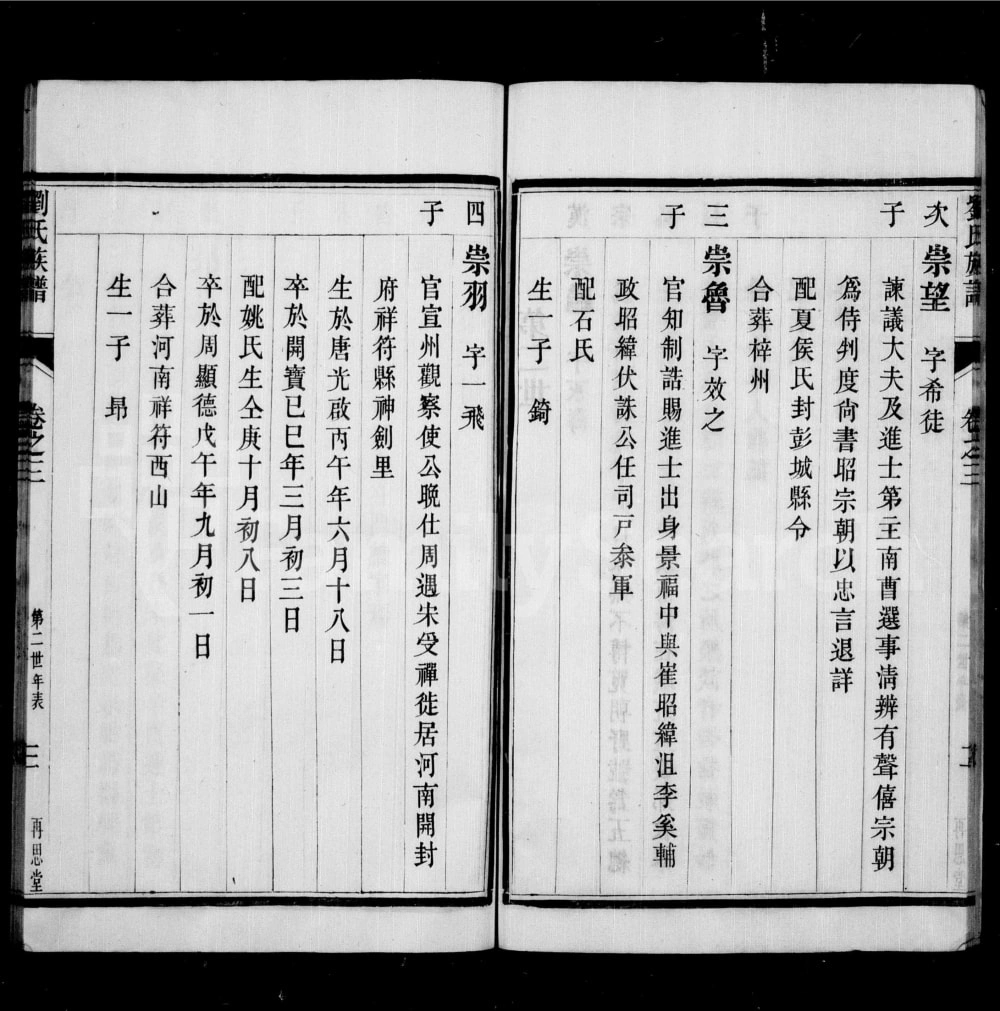 劉氏族譜 卷之三 二
次子 崇望 字希徒
諫議大夫及進士第三王南曹選事清辨有聲僖宗朝
為侍判度尙書昭宗朝以忠言退詳
配夏侯氏封彭城縣令
合葬梓州
三子 崇魯 字效之
官知制誥賜進士出身景福中與崔昭緯沮李奚輔
政昭緯伏誅公任司戸叅軍
配石氏
生一子 錡
四子 崇羽 字一飛
官宣州觀察使公晚仕周遇宋受禪徙居河南開封
府祥符縣神劍里
生於唐光啟丙午年六月十八日
卒於開寶已巳年三月初三日
配姚氏生仝庚十月初八日
卒於周顯德戊午年九月初一日
合葬河南祥符西山
生一子 昂
劉氏族譜 卷之三 第二世年表 三 再思堂